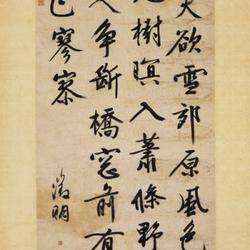 天欲雪郊原風色
樹暝入蕭條野
人爭斷橋窓前有
寥寥
徵明